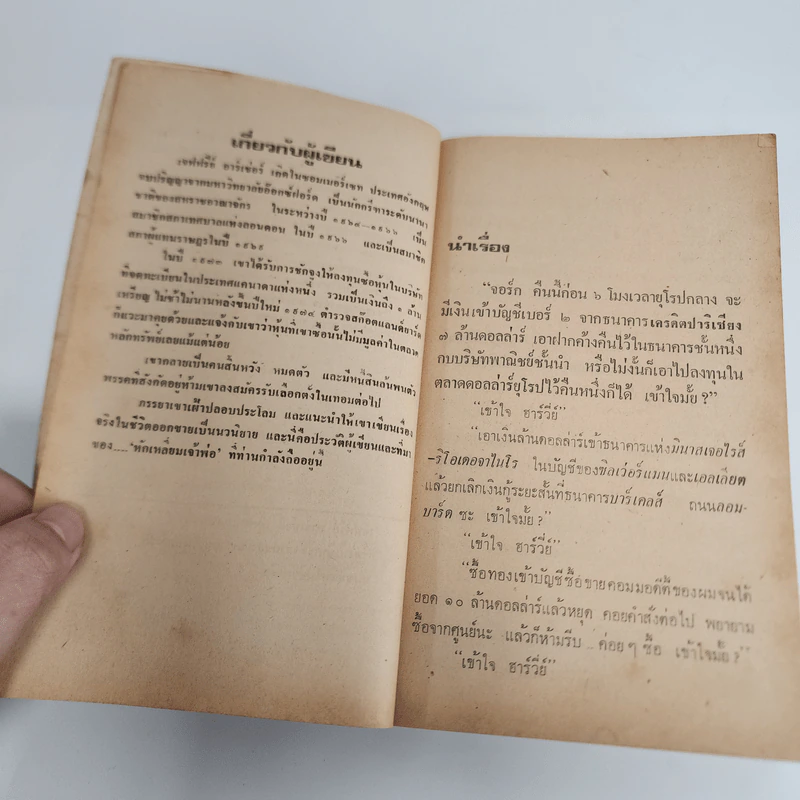 เกี่ยวกับผู้เขียน
เจฟฟรีย์ อาร์เช่อร์ เกิดในซอมเมอร์เซท ประเทศอังกฤษ
จบปริญญาจากมหาวิทยาลัยอ๊อกซ์ฟอร์ด เป็นนักกรีฑาระดับนานา
ชาติของสหราชอาณาจักร ในระหว่างปี ๑๙๖๔—๑๙๖๖ เป็น
สมาชิกสภาเทศบาลแห่งลอนดอน ในปี ๑๙๖๖ และเป็นสมาชิก
สภาผู้แทนราษฎรในปี ๑๙๖๙
ในปี ๑๙๗๓ เขาได้รับการชักจูงให้ลงทุนซื้อหุ้นในบริษัท
ที่จดทะเบียนในประเทศแคนาดาแห่งหนึ่ง รวมเป็นเงินถึง ๑ ล้าน
เหรียญ ไม่ช้าไม่นานหลังขึ้นปีใหม่ ๑๙๗๔ ตำรวจสก๊อตแลนด์ยาร์ด
ก็แวะมาคุยด้วยและแจ้งกับเขาว่าหุ้นที่เขาซื้อนั้นไม่มีมูลค่าในตลาด
หลักทรัพย์เลยแม้แต่น้อย
เขากลายเป็นคนสิ้นหวัง หมดตัว และมีหนี้สินล้นพ้นตัว
พรรคที่สังกัดอยู่ห้ามเขาลงสมัครรับเลือกตั้งในเทอมต่อไป
ภรรยาเขาเฝ้าปลอบประโลม และแนะนำให้เขาเขียนเรื่อง
จริงในชีวิตออกขายเป็นนวนิยาย และนี่คือประวัติผู้เขียนและที่มา
ของ.....'หักเหลี่ยมเจ้าพ่อ' ที่ท่านกำลังถืออยู่นี้
นำเรื่อง
"จอร์ก คืนนี้ก่อน ๖ โมงเวลายุโรปกลาง จะ
มีเงินเข้าบัญชีเบอร์ ๒ จากธนาคารเครดิตปาริเซียง
๗ ล้านดอลล่าร์ เอาฝากค้างคืนไว้ในธนาคารชั้นหนึ่ง
กับบริษัทพาณิชย์ชั้นนำ หรือไม่งั้นก็เอาไปลงทุนใน
ตลาดดอลล่าร์ยุโรปไว้คืนหนึ่งก็ได้ เข้าใจมั้ย ?"
"เข้าใจ ฮาร์วีย์"
"เอาเงินล้านดอลล่าร์เข้าธนาคารแห่งมินาสเจอไรส์
-ริโอเดอจาไนโร ในบัญชีของซิลเว่อร์แมนและเอลเลียต
แล้วยกเลิกเงินกู้ระยะสั้นที่ธนาคารบาร์เคลส์ ถนนลอม-
บาร์ด ซะ เข้าใจมั้ย ?"
"เข้าใจ ฮาร์วีย์"
"ซื้อทองเข้าบัญชีซื้อขายคอมมอดิตี้ของผมจนได้
ยอด ๑๐ ล้านดอลล่าร์แล้วหยุด คอยคำสั่งต่อไป พยายาม
ซื้อจากศูนย์นะ แล้วก็ห้ามรีบ ... ค่อย ๆ ซื้อ เข้าใจมั้ย ?"
"เข้าใจ ฮาร์วีย์"